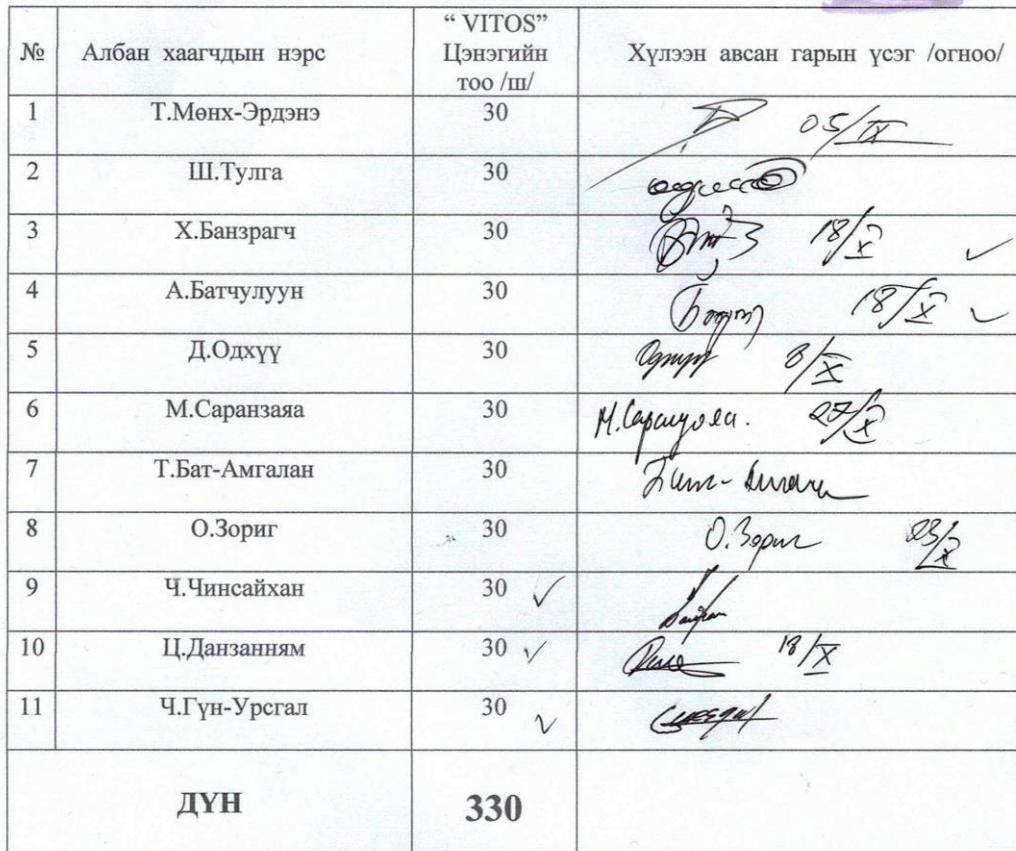 № Албан хаагчдын нэрс “ VITOS” Цэнэгийн тоо /ш/ Хүлээн авсан гарын үсэг /огноо/
1 Т.Мөнх-Эрдэнэ 30 05/IX
2 Ш.Тулга 30
3 Х.Банзрагч 30 18/X
4 А.Батчулуун 30 18/X
5 Д.Одхүү 30 8/X
6 М.Саранзаяа 30 27/X
7 Т.Бат-Амгалан 30
8 О.Зориг 30 О.Зориг 23/X
9 Ч.Чинсайхан 30
10 Ц.Данзанням 30 18/X
11 Ч.Гүн-Урсгал 30
ДҮН 330